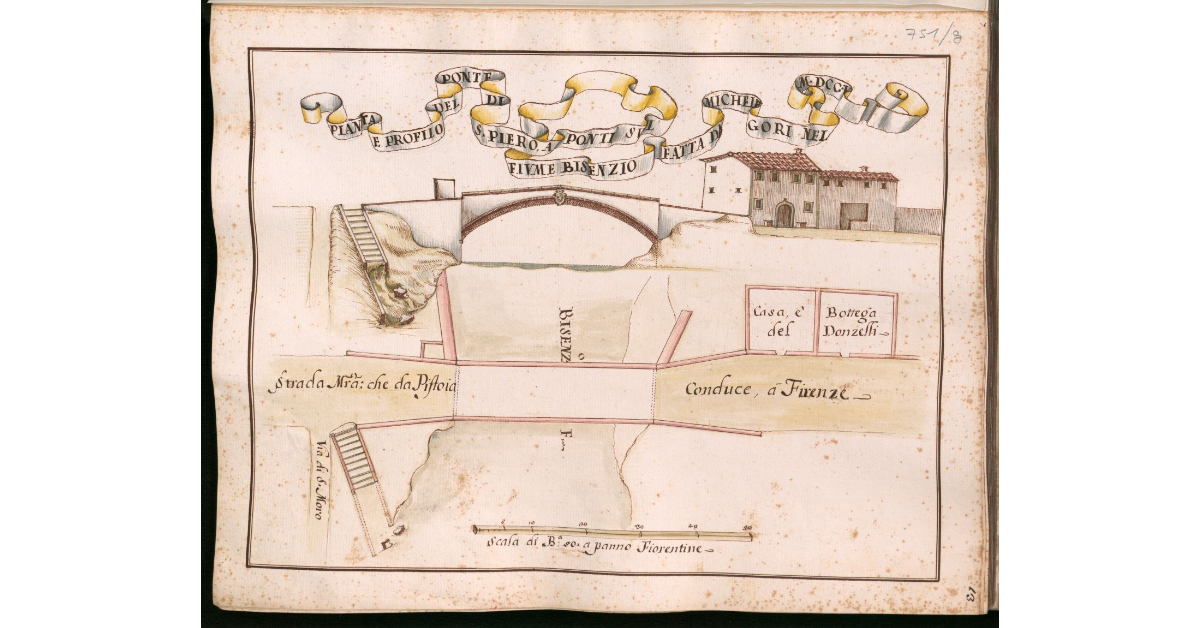 751/8
PIANTA
E PROFILO
DEL
PONTE
DI
S. PIERO. A PONTI SVL
FIVME BISENZIO
FATTA DI
MICHELE
GORI NEL
M·DCC·
Casa, e' del
Bottega
Donzelli
BISENZO
Strada Mrã: che da Pistoia
Conduce, á Firenze
F
Via di S. Moro
10 20 30 40 50
Scala di B.ª 50. a panno Fiorentine
13